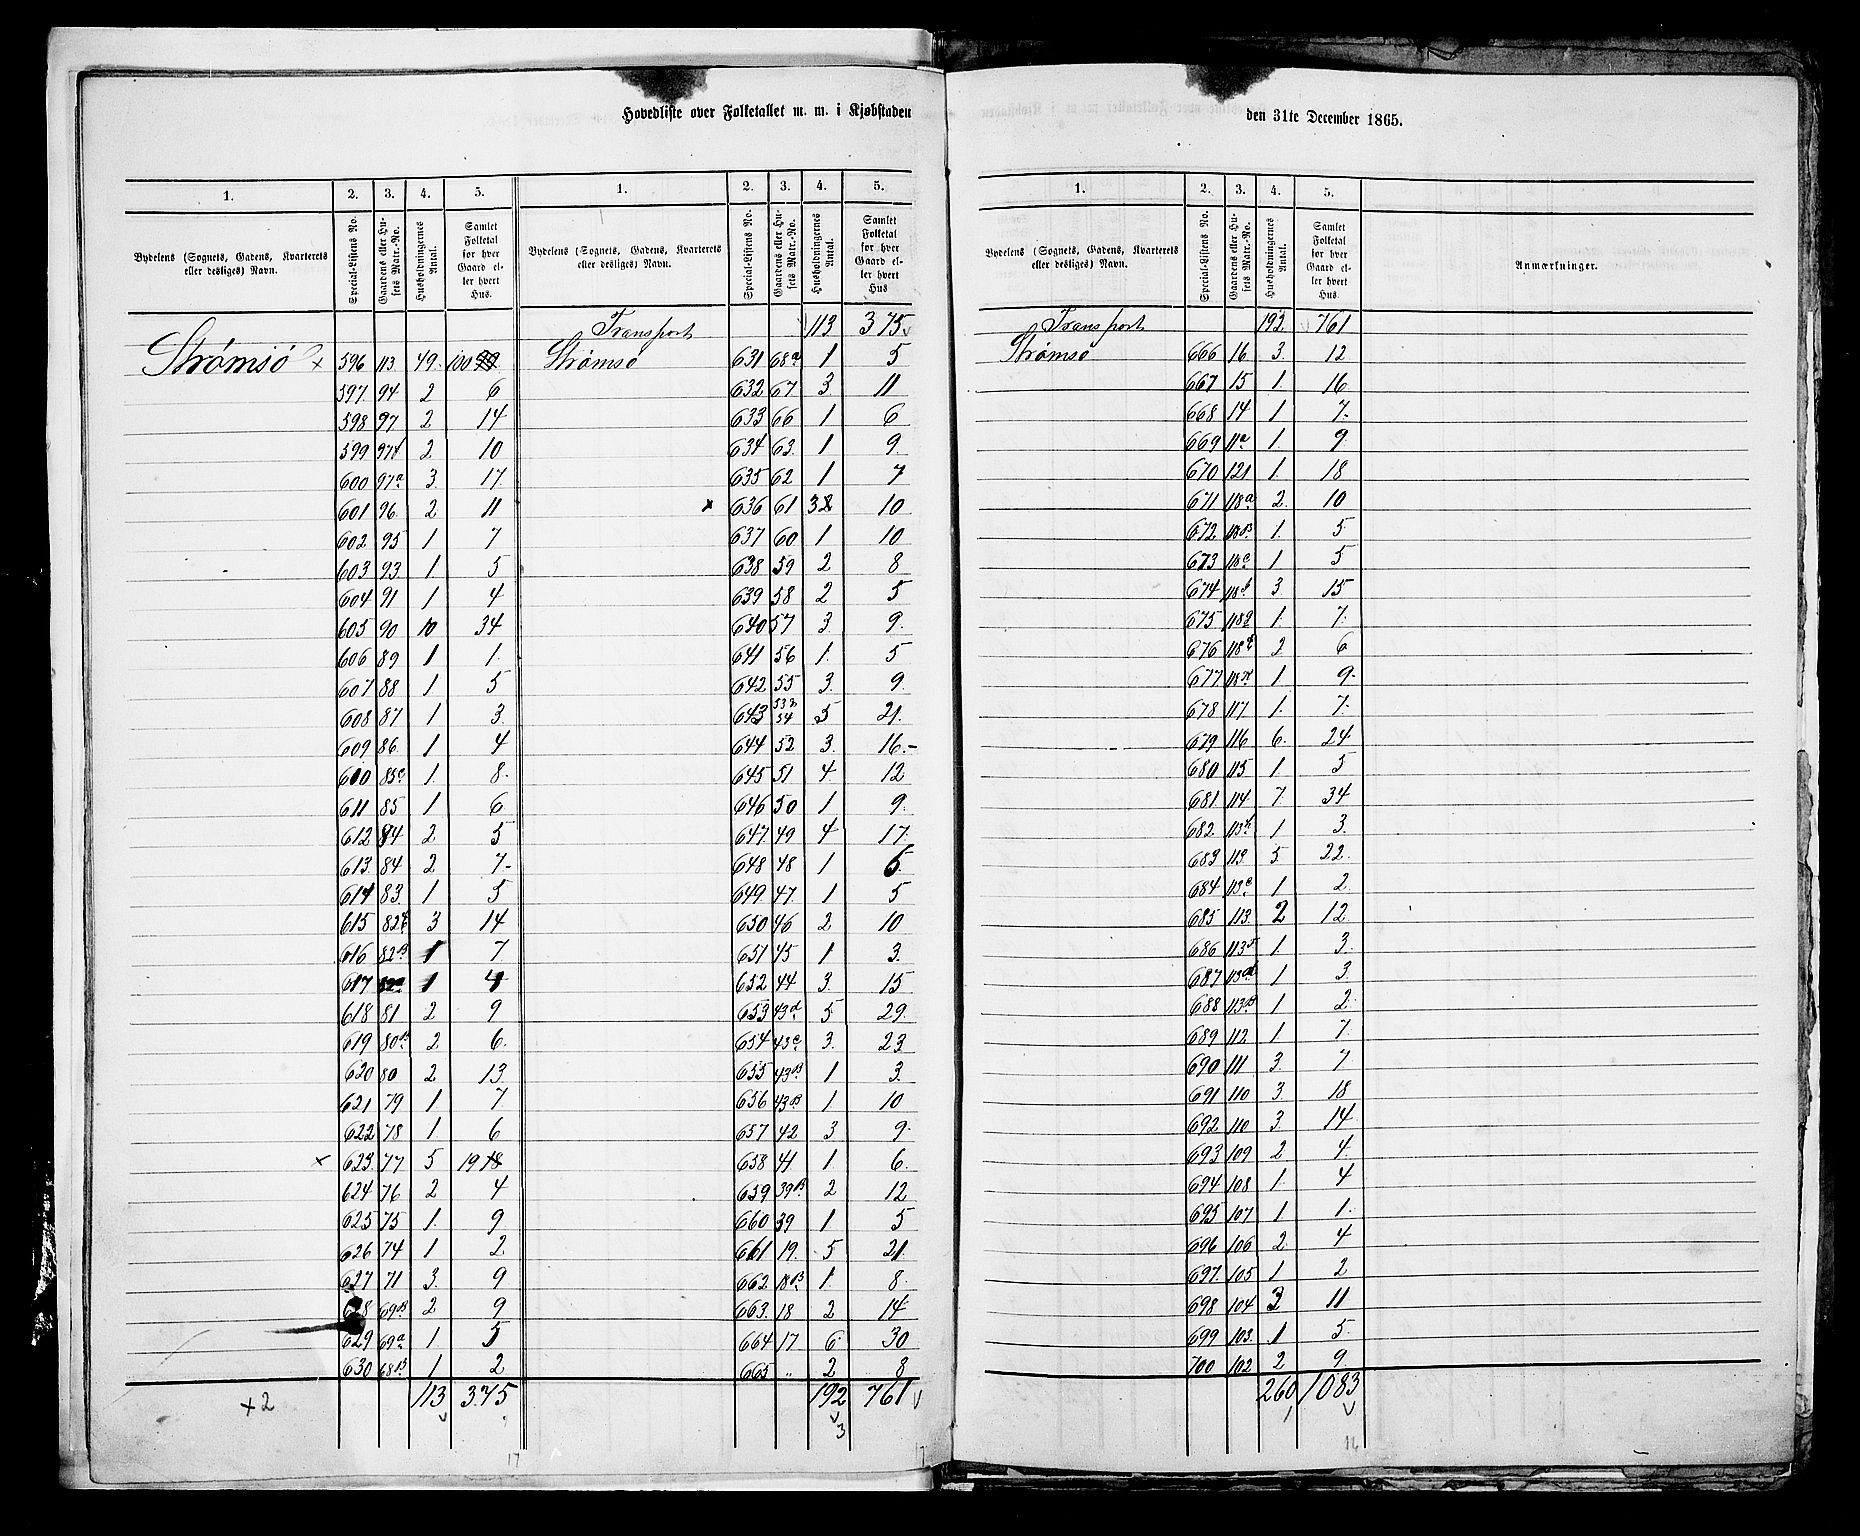 Hovedliste over Folketallet m. m. i Kjøbstaden
1. 2. 3. 4. 5. 1. 2. 3. 4. 5.
Bydelens (Sognets, Gadens, Kvarterets eller desliges) Navn. Special-Listens No. Gaardens eller Husets Matr.-No. Husholdningernes Antal. Samlet Folketal for hver Gaard eller hvert Hus. Bydelens (Sognets, Gadens, Kvarterets eller desliges) Navn. Special-Listens No. Gaardens eller Husets Matr.-No. Husholdningernes Antal. Samlet Folketal for hver Gaard eller hvert Hus
Transport 113 375
Strømsö x 596 113 49. 100 99 Strømsø 631 68a 1 5
597. 94 2 6 632 67 3. 11
598 97 2 14 633 66 1 6
599 2. 10 634 63. 1 9.
600 97a 3. 17 635 62 1 7
601 96. 2 11 x 636 61 32 10
602 95 1 7 637 60 1 10
603 93 1 5 638 59 2 8
604 91 1 4 639 58 2 5
605 90 10 34 640 57 3. 9.
606 89 1 1. 641 56 1. 5
607 88 1 5 642 55 3. 9.
608 87 1 3. 643 53 & 54 5 21.
609 86. 1 4 644 52 3. 16.-
610 85c 1. 8. 645 51 4. 12
611 85 1 6 646 50 1 9.
612 84 2 5 647. 49 4 17.
613. 84 2 7- 648 48 1 5.
614 83. 1 5 649 47. 1 5
615 82 3 14 650 46 2 10
616 82B 1 7 651 45 1 3.
617 82a 1 4 652 44 3. 15
618 81 2 9 653 43d 5 29.
619 80B 2. 6. 654 43c 3. 23
620 80 2 13. 655 43B 1 3.
621 79 1 7 656 43B 1 10
622 78 1. 6 657 42 3 9.
x 623. 77 5 19 18 658 41 1 6.
624 76 2 4 659 39B 2 12
625 75 1. 9. 660 39 1 5
626 74 1 2 661 19. 5 21.
627 71 3. 9 662. 18B 1. 8.
628 69B 2 9 663. 18 2 14
629 69a 1. 5 664 17 6. 30
630 68B 1 2 665 " 2 8
+2 113 375 192 761
3
17
den 31te December 1865.
1. 2. 3. 4. 5.
Bydelens (Sognets, Gadens, Kvarterets eller desliges) Navn. Special-Listens No. Gaardens eller Husets Matr.-No. Husholdningernes Antal. Samlet Folketal for hver Gaard eller hvert Hus. Anmærkninger.
Transport 192. 761
Strømsø 666 16. 3. 12
667 15 1. 16.
668 14 1 7-
669 11a 1. 9.
670 121 1. 18
671 118a 2. 10
672 118B 1. 5.
673 118c 1 5
674 3 15
675 118 1. 7.
676 118 2 6
677 118 1 9-
678 117 1. 7-
679 116 6. 24
680 115 1 5
681 114 7. 34
682. 113 1 3.
683 113 5. 22.
684 113e 1 2
685 113. 2 12
686 113 1 3.
687 113d 1 3.
688 113B 1 2.
689 112. 1 7.
690 111 3. 7
691 110 3. 18
692 110 3. 14
693 109 2 4.
694 108 1. 4
695 107 1 1.
696 106 2. 4
697. 105 1 2
698 104 3 11
699 103. 1 5.
700 102 2 9.
260 1083
16